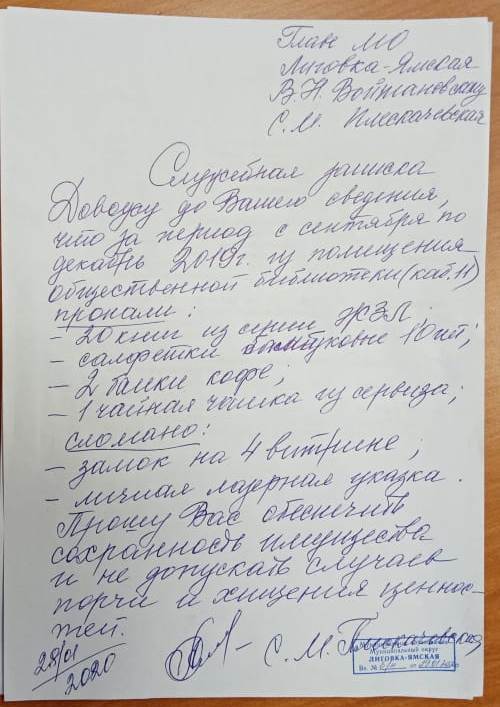 Главе МО
Лиговка-Ямская
В.Н. Войтановскому
С.М. Плескачевская
Служебная записка
Довожу до Вашего сведения,
что за период с сентября по
декабрь 2019г. из помещения
общественной библиотеки (каб. 11)
пропали:
- 20 книг из серии ЖЗЛ;
- салфетки 10шт;
- 2 банки кофе;
- 1 чайная чашка из сервиза;
сломано:
- замок на 4 витрине;
- личная лазерная указка.
Прошу Вас обеспечить
сохранность имущества
и не допускать случаев
порчи и хищения ценнос-
тей.
28/01
2020
С.М. Плескачевская
Муниципальный округ
ЛИГОВКА-ЯМСКАЯ
Вх. №